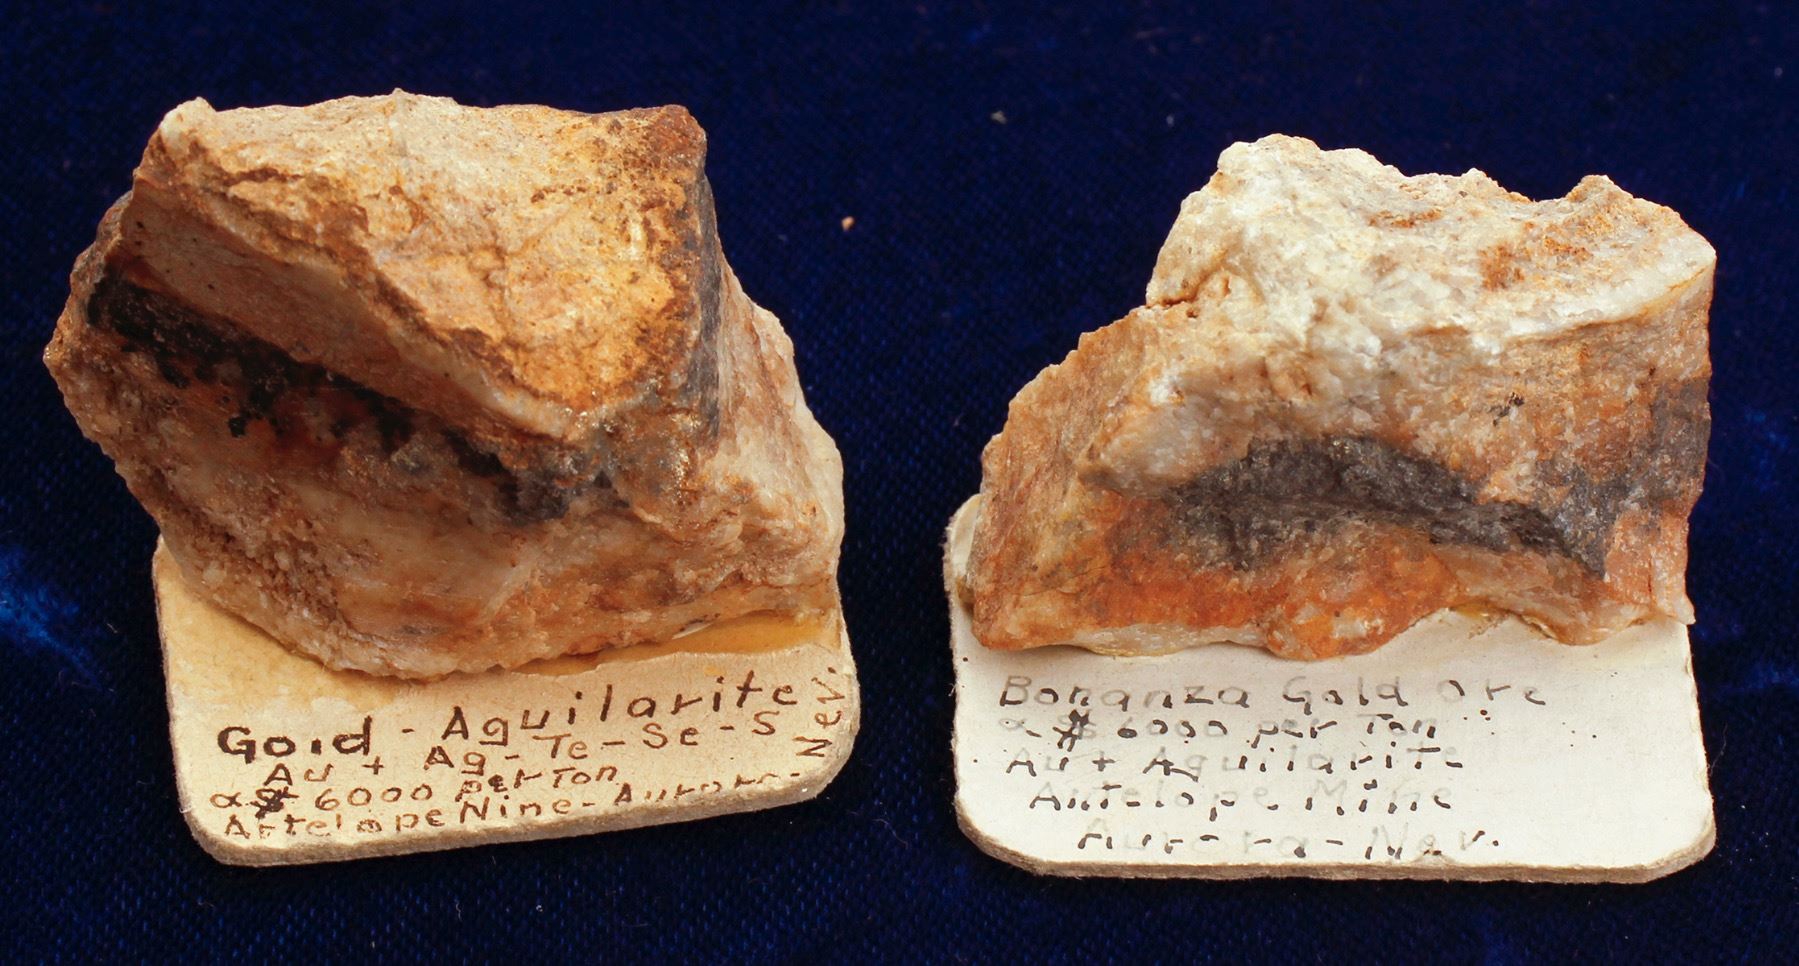 Gold - Aguilarite
Au + Ag - Te - Se - S
$ 6000 per Ton
Antelope Nine - Aurora - Nev.
Bonanza Gold Ore
$ 6000 per Ton
Au + Aguilarite
Antelope Mine
Aurora - Nev.